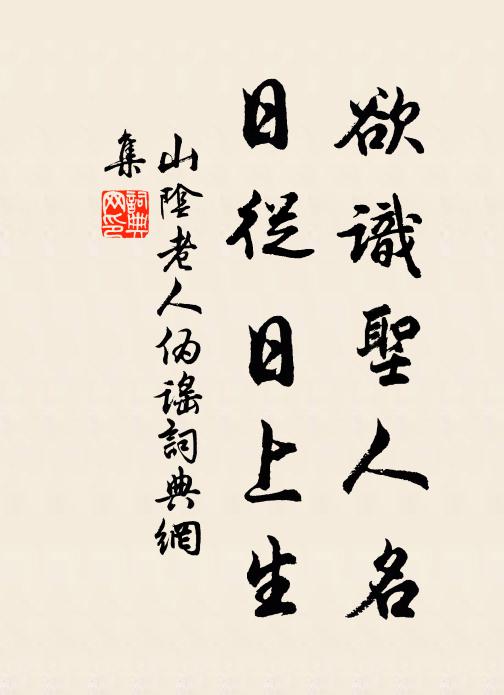 欲識聖人名
日從日上生
山陰老人偽謠詞典網
集
詞典
網印